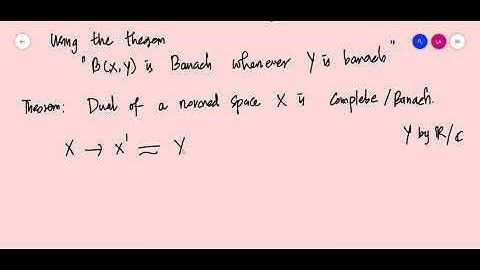 Using the theorem
"B(X,Y) is Banach whenever Y is banach"
Theorem: Dual of a normed space X is Complete/Banach.
Y by ℝ/ℂ
X → X' ≈ Y